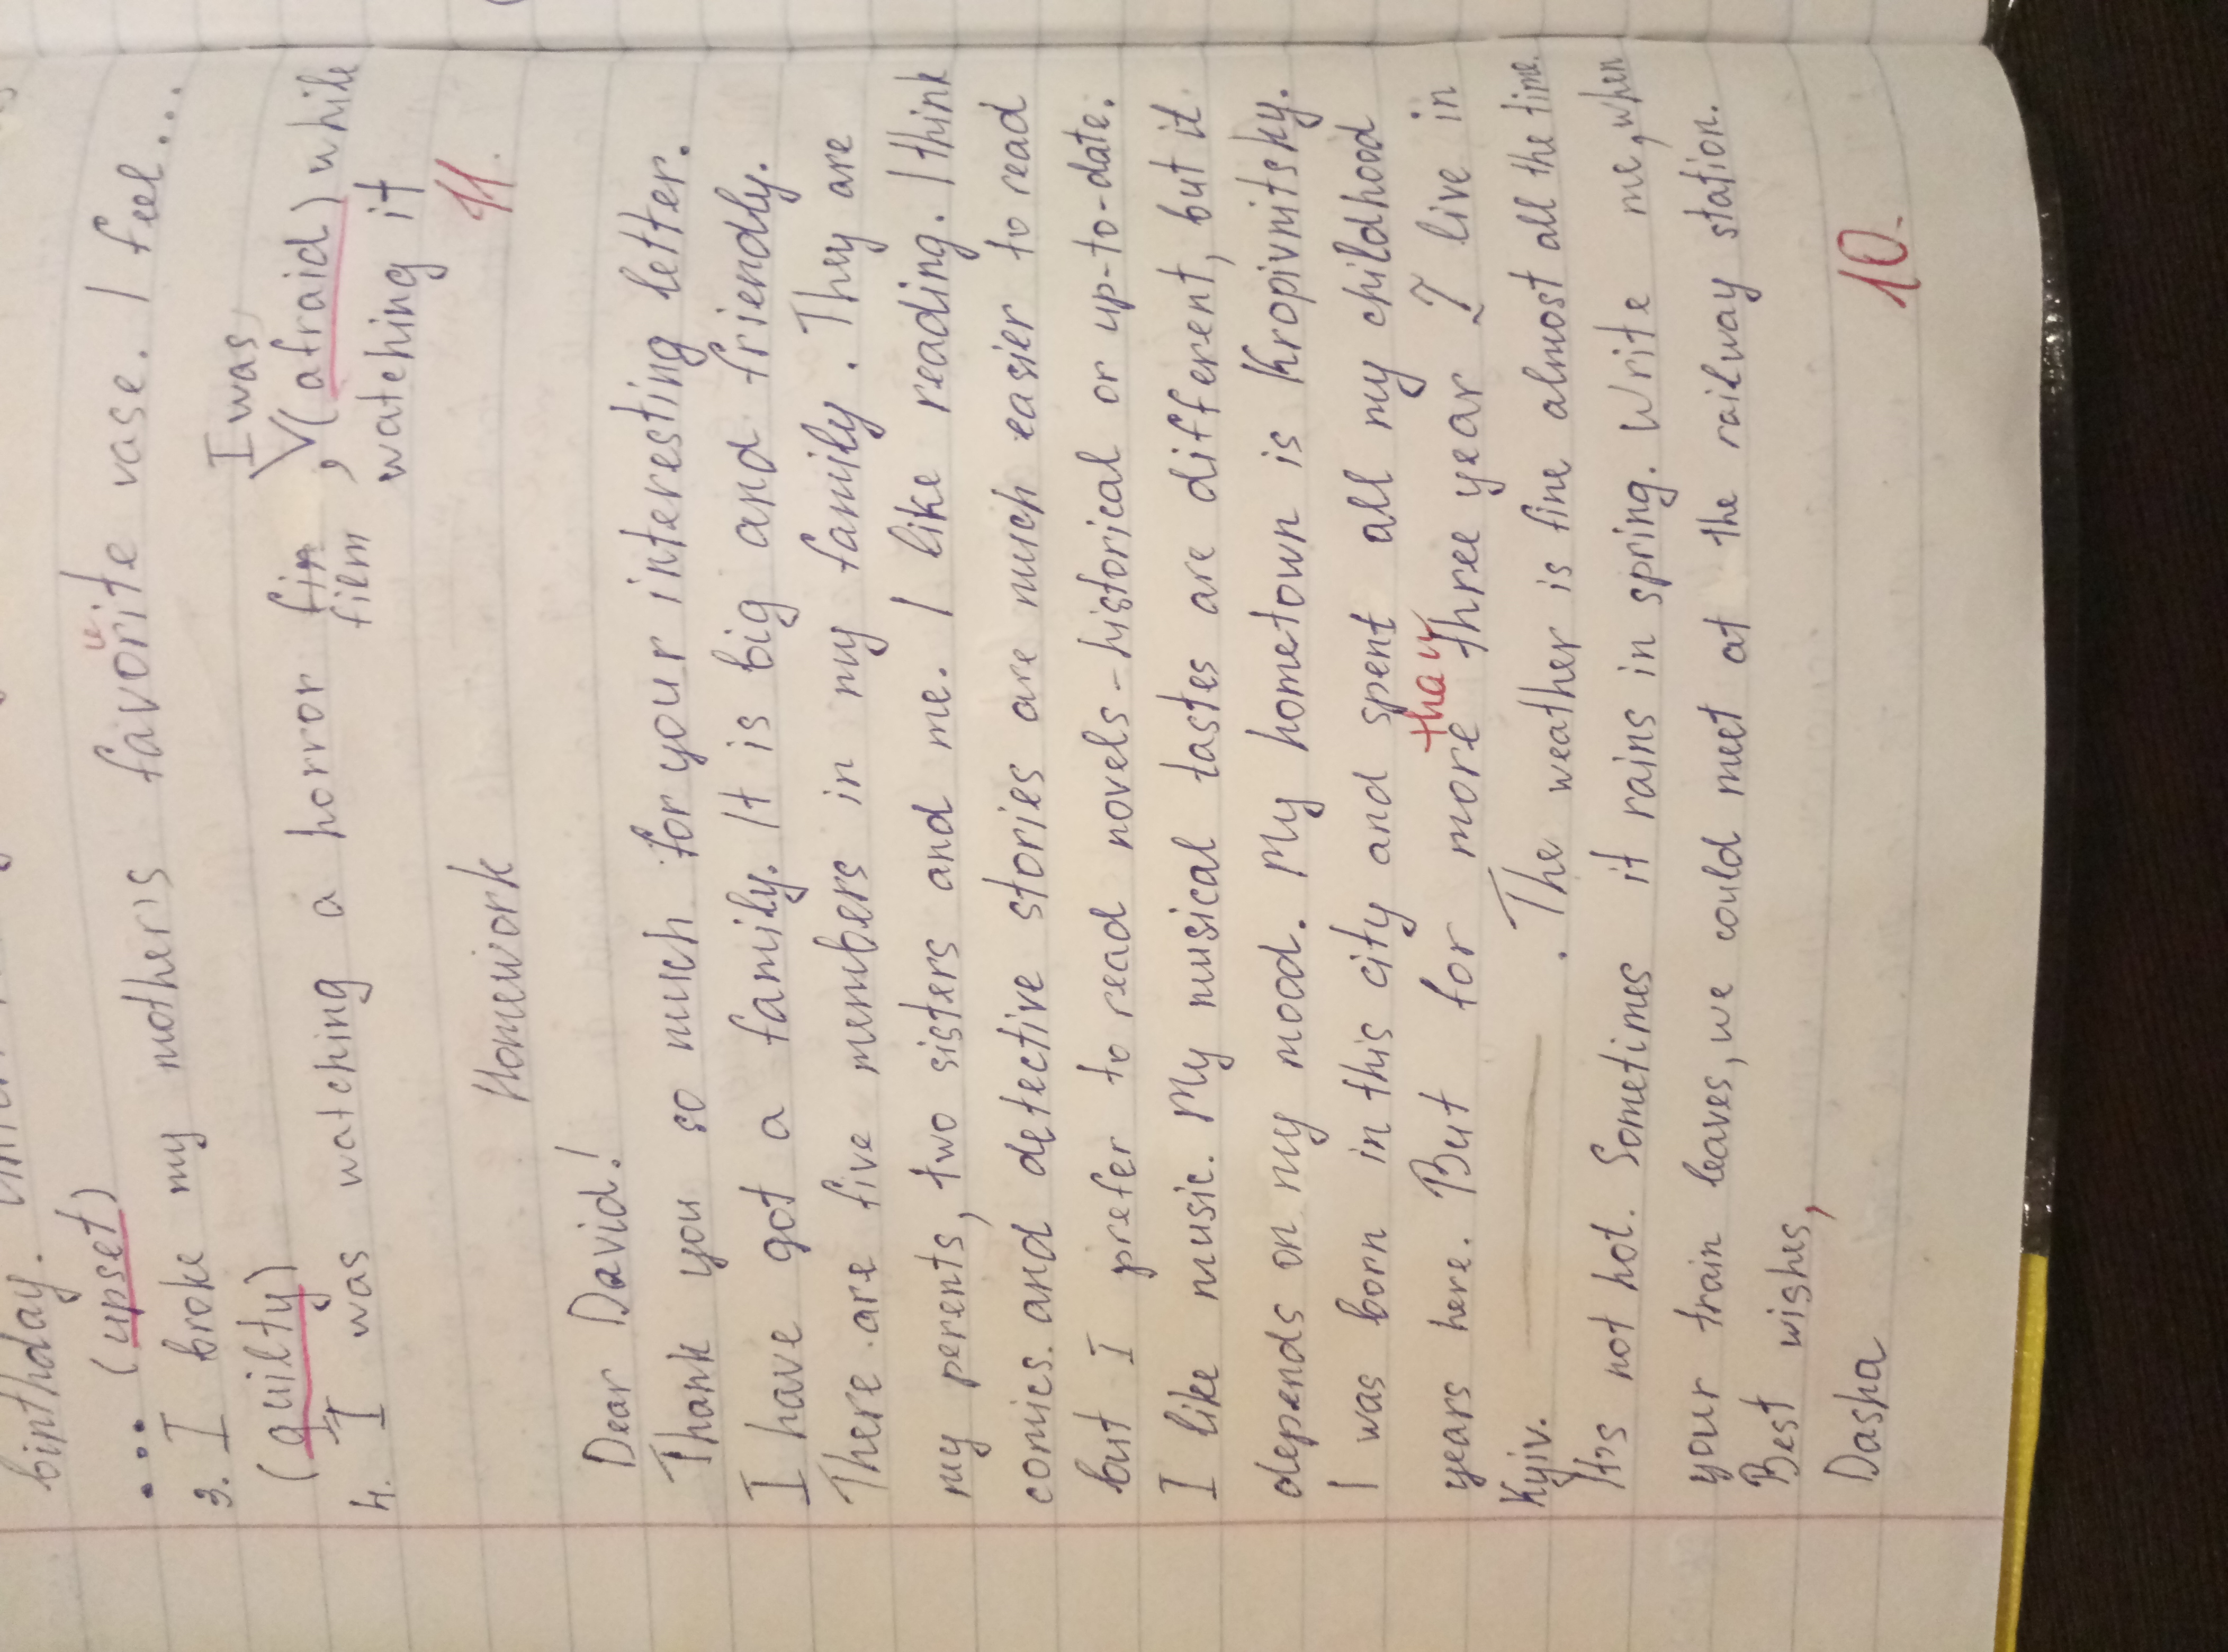 birthday.
... (upset)
3. I broke my mother's favorite vase. I feel...
u
(guilty)
I was
4. I was watching a horror fin, (afraid) while
film watching it
11.
Homework
Dear David!
Thank you so much for your interesting letter.
I have got a family. It is big and friendly.
There are five members in my family. They are
my perents, two sisters and me. I like reading. I think
comics and detective stories are much easier to read
but I prefer to read novels - historical or up-to-date.
I like music. My musical tastes are different, but it
depends on my mood. My hometown is Kropivnitsky.
I was born in this city and spent all my childhood
than
years here. But for more three year I live in
Kyiv. The weather is fine almost all the time.
It's not hot. Sometimes it rains in spring. Write me, when
your train leaves, we could meet at the railway station.
Best wishes,
Dasha
10.